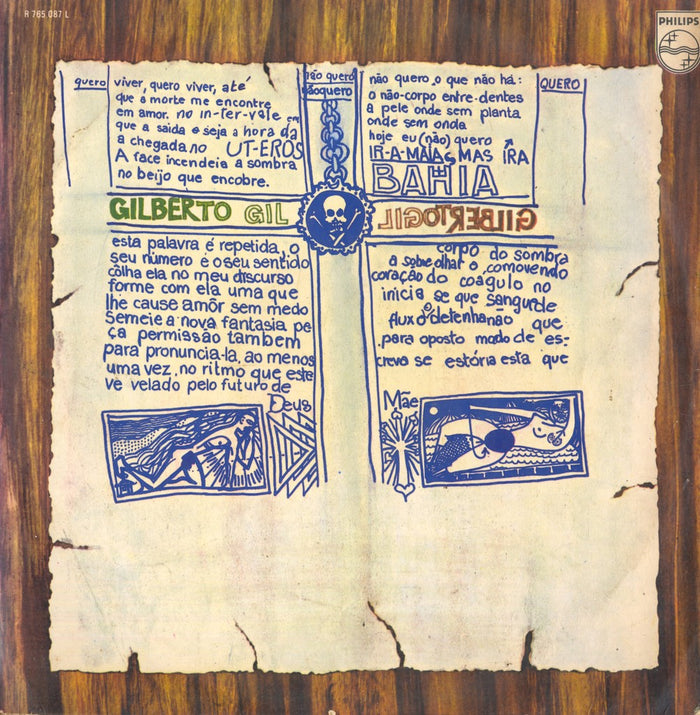 R 765 087 L
PHILIPS
quero
viver, quero viver, até
que a morte me encontre
em amor. no in-ter-vale em
que a saida e seja a hora da
a chegada no UT-EROS
A face incendeia a sombra
no beijo que encobre.
não quero
nãoquero
não quero o que não há:
o não-corpo entre-dentes
a pele onde sem planta
onde sem onda
hoje eu (não) quero
IR-A-MAIAS MAS IRA
BAHIA
QUERO
GILBERTO GIL
GILBERTO GIL
esta palavra é repetida, o
seu número é o seu sentido
côlha ela no meu discurso
forme com ela uma que
lhe cause amôr sem medo
semeie a nova fantasia pe
ça permissão também
para pronuncia-la, ao menos
uma vez, no ritmo que este
ve velado pelo futuro de
Deus
corpo do sombra
a sobre olhar o comovendo
coração do coágulo no
inicia se que sangue de
flux o detenha não que
para oposto modo de es-
creva se estória esta que
Mãe